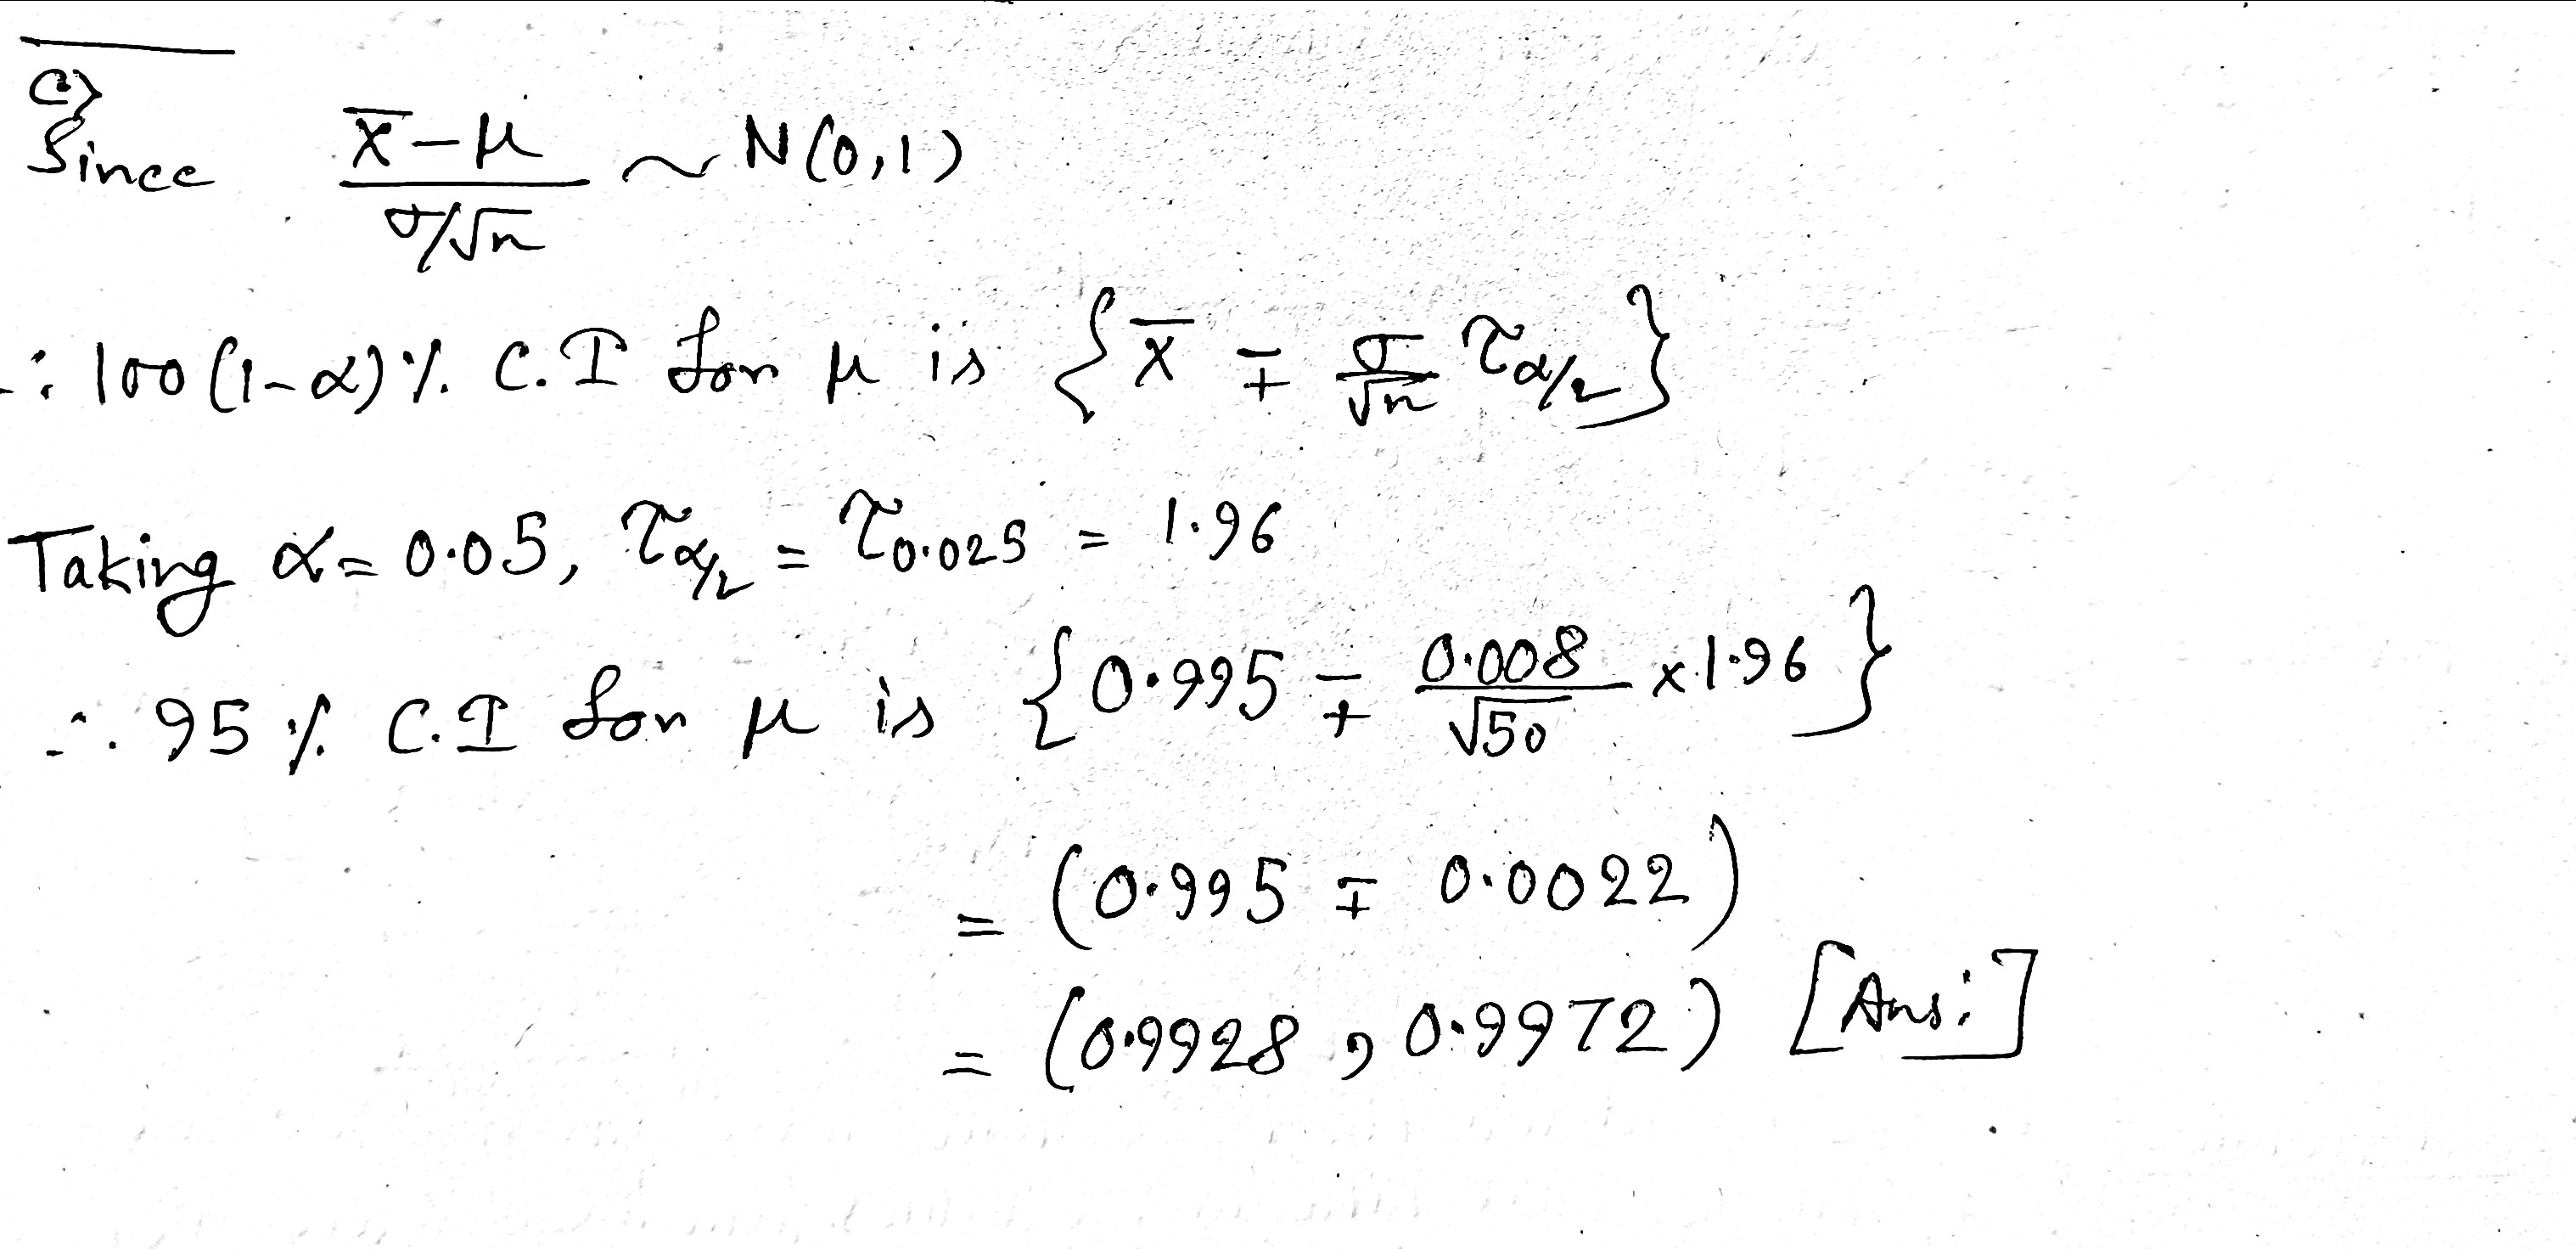 c)
Since (x̄ - μ)/(σ/√n) ~ N(0,1)
∴ 100(1-α)% C.I for μ is {x̄ ∓ σ/√n τα/2}
Taking α = 0.05, τα/2 = τ0.025 = 1.96
∴ 95% C.I for μ is {0.995 ∓ 0.008/√50 × 1.96}
= (0.995 ∓ 0.0022)
= (0.9928, 0.9972) [Ans:]